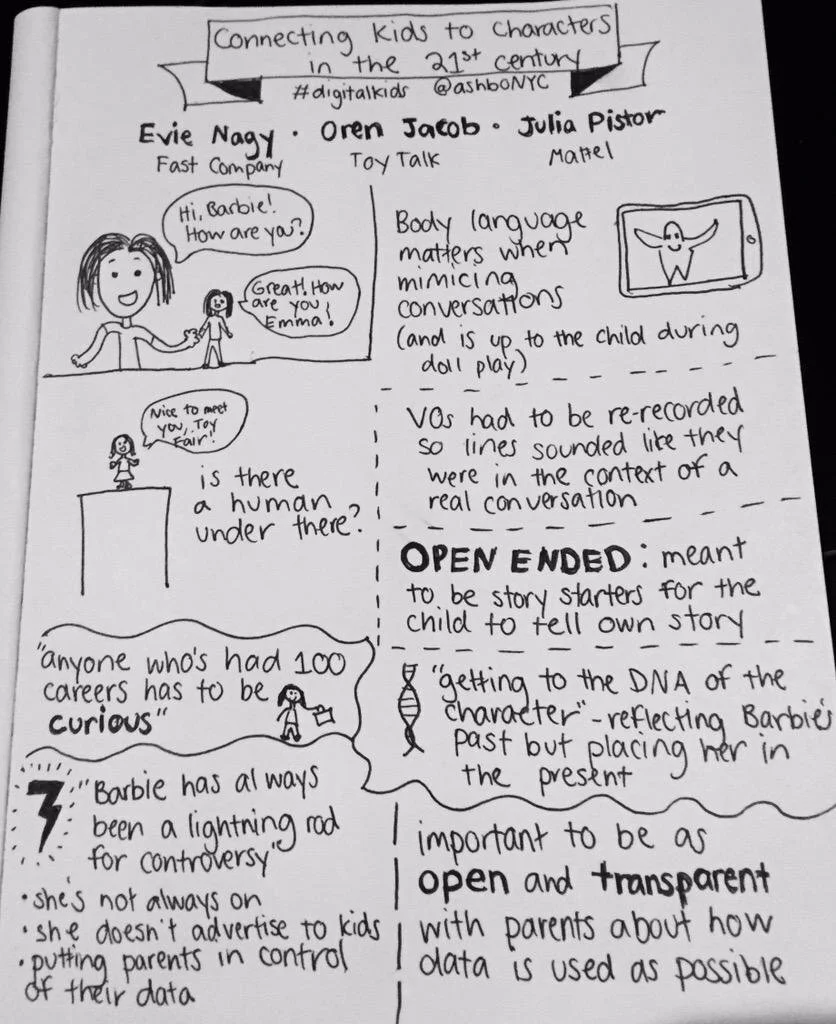 Connecting Kids to Characters
in the 21st century
#digitalkids @ashboNYC
Evie Nagy · Oren Jacob · Julia Pistor
Fast Company Toy Talk Mattel
Hi, Barbie!
How are you?
Great! How
are you
Emma!
Body language
matters when
mimicing
conversations
(and is up to the child during
doll play)
Nice to meet
you, Toy
Fair!
is there
a human
under there?
VOs had to be re-recorded
so lines sounded like they
were in the context of a
real conversation
OPEN ENDED: meant
to be story starters for the
child to tell own story
"anyone who's had 100
careers has to be
curious"
"getting to the DNA of the
character" - reflecting Barbie's
past but placing her in
the present
"Barbie has always
been a lightning rod
for controversy"
· she's not always on
· she doesn't advertise to kids
· putting parents in control
of their data
important to be as
open and transparent
with parents about how
data is used as possible